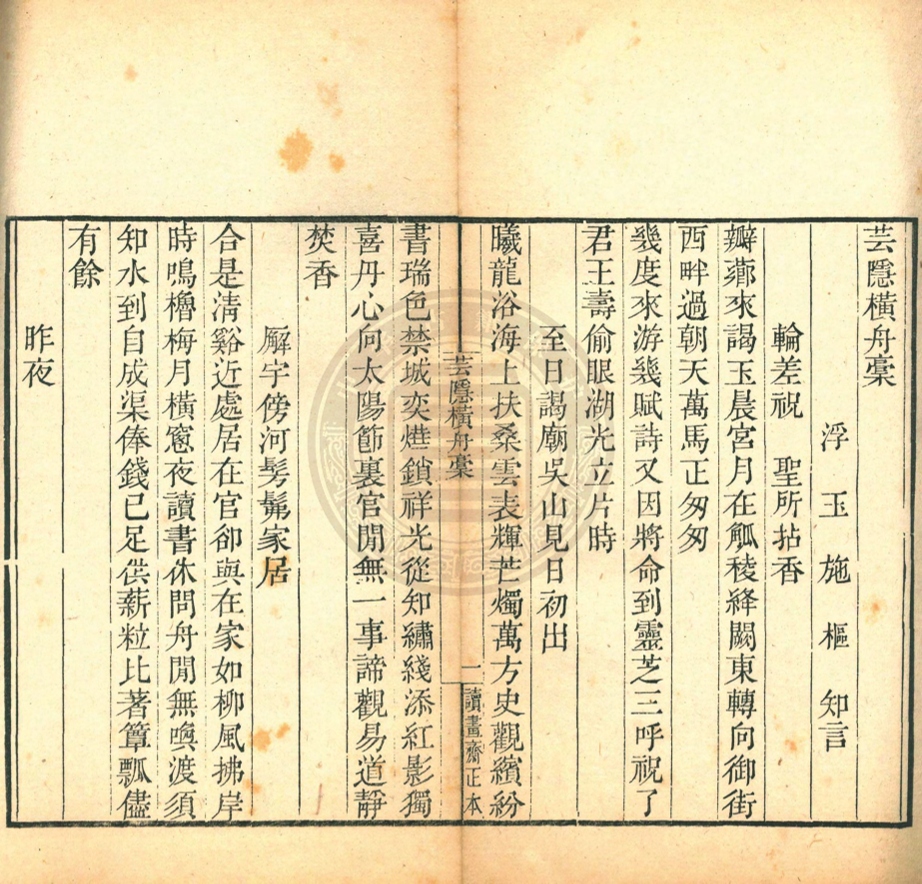 芸隱橫舟稾
浮玉施樞知言
輪差祝　聖所拈香
瓣薌來謁玉晨宮月在觚稜絳闕東轉向御街
西畔過朝天萬馬正匆匆
幾度來游幾賦詩又因將命到靈芝三呼祝了
君王壽偷眼湖光立片時
至日謁廟吳山見日初出
曦龍浴海上扶桑雲表輝芒燭萬方史觀繽紛
芸隱橫舟稾
一
讀畫齋正本
書瑞色禁城奕爀鎖祥光從知繡綫添紅影獨
喜丹心向太陽節裏官閒無一事諦觀易道靜
焚香
廨宇傍河髣髴家居
合是清谿近處居在官卻與在家如柳風拂岸
時鳴櫓梅月橫窻夜讀書休問舟閒無喚渡須
知水到自成渠俸錢已足供薪粒比著簞瓢儘
有餘
昨夜